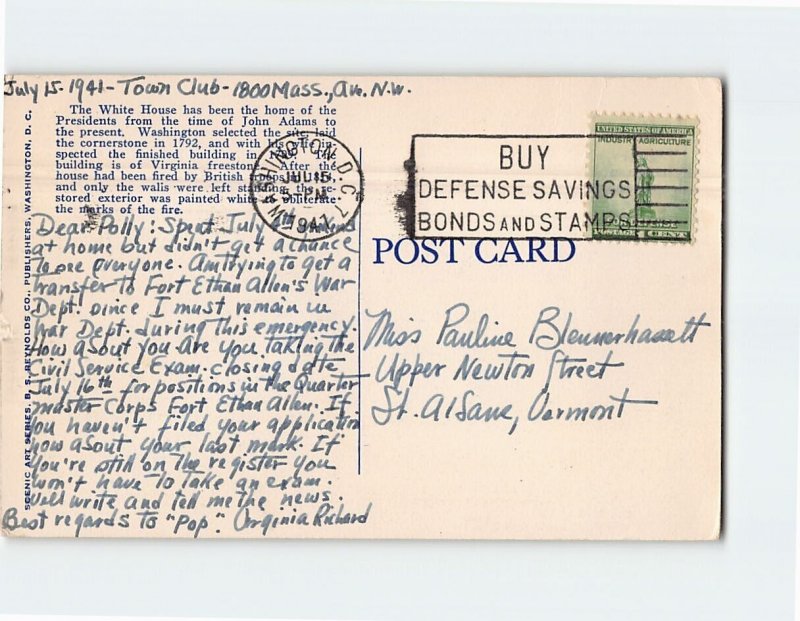 July 15-1941-Town Club-1800 Mass., Ave. N.W.
The White House has been the home of the
Presidents from the time of John Adams to
the present. Washington selected the site, laid
the cornerstone in 1792, and with his wife in-
spected the finished building in The
building is of Virginia freestone. After the
house had been fired by British troops in
and only the walls were left standing the re-
stored exterior was painted white to obliterate
the marks of the fire.
Dear Polly: Spent July 4th
at home but didn't get a chance
to see everyone. Am trying to get a
transfer to Fort Ethan Allen's War
Dept. since I must remain in
War Dept. during this emergency.
How about you are you taking the
Civil Service Exam. closing date
July 16th for positions in the Quarter
master Corps Fort Ethan Allen. If
you haven't filed your application
how about your last mark. If
you're still on the register you
won't have to take an exam.
Well write and tell me the news.
Best regards to "Pop". Virginia Richard
SCENIC ART SERIES. B. S. REYNOLDS CO., PUBLISHERS, WASHINGTON, D. C.
WASHINGTON, D.C.
JUL 15
5 PM
1941
BUY
DEFENSE SAVINGS
BONDS AND STAMPS
UNITED STATES OF AMERICA
INDUSTRY AGRICULTURE
POST CARD
Miss Pauline Blennerhassett
Upper Newton Street
St. Albans, Vermont